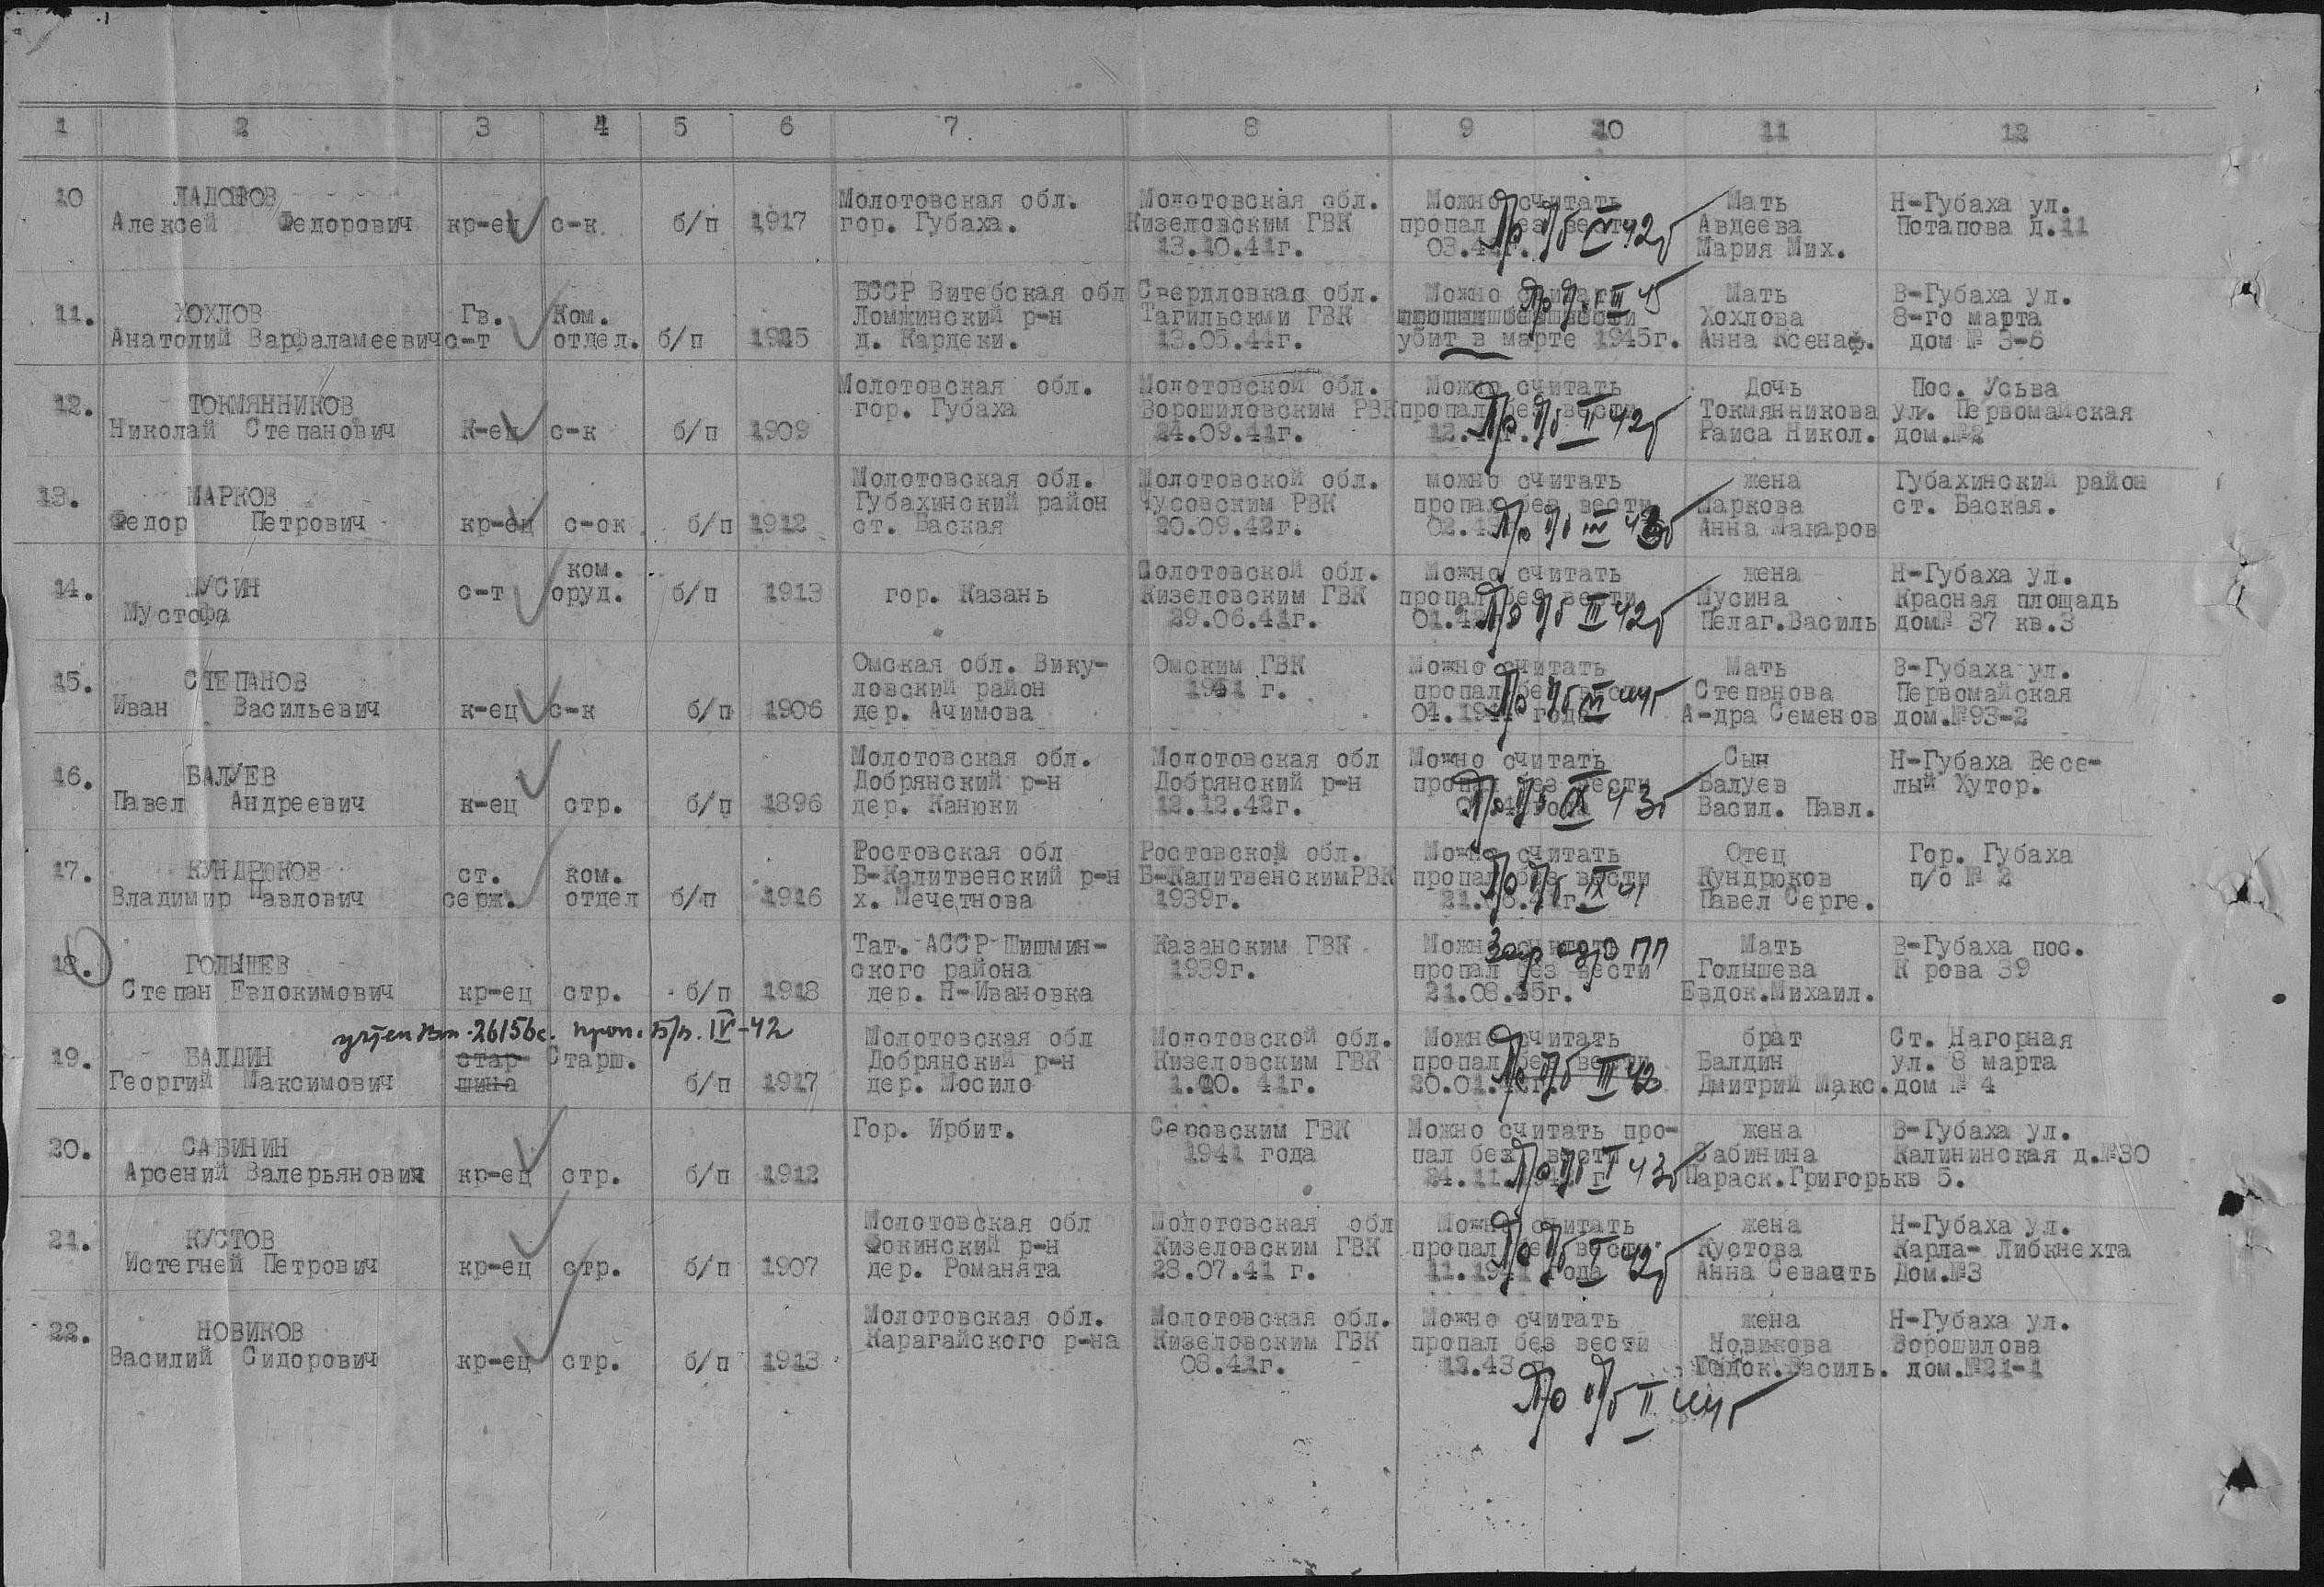 1 2 3 4 5 6 7 8 9 10 11 12
10 ЛАДОНОВ Молотовская обл. Молотовская обл. Можно считать Мать Н-Губаха ул.
Алексей Федорович кр-ец с-к б/п 1917 гор. Губаха. Кизеловским ГВК пропал без вести Авдеева Потапова д.11
13.10.41г. 03.42г. Мария Мих.
БССР Витебская обл Свердловкая обл. Можно считать Мать В-Губаха ул.
11. ХОХЛОВ Гв. Ком. Ломжинский р-н Тагильским ГВК пропал без вести Хохлова 8-го марта
Анатолий Варфаламеевич с-т отдел. б/п 1925 д. Кардеки. 13.05.41г. убит в марте 1945г. Анна Ксенаф. дом № 3-6
Молотовская обл. Молотовской обл. Можно считать Дочь Пос. Усьва
12. ТОКМЯННИКОВ гор. Губаха Ворошиловским РВК пропал без вести Токмянникова ул. Первомайская
Николай Степанович К-ец с-к б/п 1909 24.09.41г. Раиса Никол. дом.№2
Молотовская обл. Молотовской обл. можно считать жена Губахинский район
13. МАРКОВ Губахинский район Чусовским РВК пропал без вести Маркова ст. Баская.
Федор Петрович кр-ец с-ок б/п 1912 ст. Баская 20.09.42г. 02.43 Анна Макаров
ком. Молотовской обл. Можно считать жена Н-Губаха ул.
14. МУСИН с-т оруд. б/п 1913 гор. Казань Кизеловским ГВК пропал без вести Мусина Красная площадь
Мустофа 29.06.41г. 01.42 Пелаг.Василь дом№ 37 кв.3
Омская обл. Вику- Омским ГВК Можно считать Мать В-Губаха ул.
15. СТЕПАНОВ ловский район 1941 г. пропал без вести Степанова Первомайская
Иван Васильевич к-ец с-к б/п 1906 дер. Ачимова 04.1944 года А-дра Семенов дом.№93-2
Молотовская обл. Молотовская обл Можно считать Сын Н-Губаха Весе-
16. БАЛУЕВ Добрянский р-н Добрянский р-н пропал без вести Балуев лый Хутор.
Павел Андреевич к-ец стр. б/п 1896 дер. Канюки 12.12.42г. Васил. Павл.
Ростовская обл Ростовской обл. Можно считать Отец Гор. Губаха
17. КУНДРЮКОВ ст. ком. Б-Калитвенский р-н Б-КалитвенскимРВК пропал без вести Кундрюков п/о № 2
Владимир Павлович серж. отдел б/п 1916 х. Мечетнова 1939г. Павел Серге.
Тат. АССР Шишмин- Казанским ГВК Можно считать Мать В-Губаха пос.
18. ГОЛЫШЕВ ского района 1939г. пропал без вести Голышева К рова 39
Степан Евдокимович кр-ец стр. б/п 1918 дер. Н-Ивановка 21.08.45г. Евдок.Михаил.
учтен вх-26156с. проп. б/в. IV-42
Молотовская обл Молотовской обл. Можно считать брат Ст. Нагорная
19. БАЛДИН стар- Старш. Добрянский р-н Кизеловским ГВК пропал без вести Балдин ул. 8 марта
Георгий Максимович шина б/п 1917 дер. Шосило 1.10. 41г. 20.01.42г. Дмитрий Макс. дом № 4
Гор. Ирбит. Серовским ГВК Можно считать про- жена В-Губаха ул.
20. САБИНИН 1941 года пал без вести Сабинина Калининская д.№30
Арсений Валерьянович кр-ец стр. б/п 1912 Параск.Григорькв 5.
Молотовская обл Молотовская обл Можно считать жена Н-Губаха ул.
21. КУСТОВ Фокинский р-н Кизеловским ГВК пропал без вести. Кустова Карла- Либкнехта
Истегней Петрович кр-ец стр. б/п 1907 дер. Романята 28.07.41 г. 11.1941 года Анна Севасть Дом.№3
Молотовская обл. Молотовская обл. Можно считать жена Н-Губаха ул.
22. НОВИКОВ Карагайского р-на Кизеловским ГВК пропал без вести Новикова Ворошилова
Василий Сидорович кр-ец стр. б/п 1913 08.41г. 12.43 г. Евдок.Василь. дом.№21-1